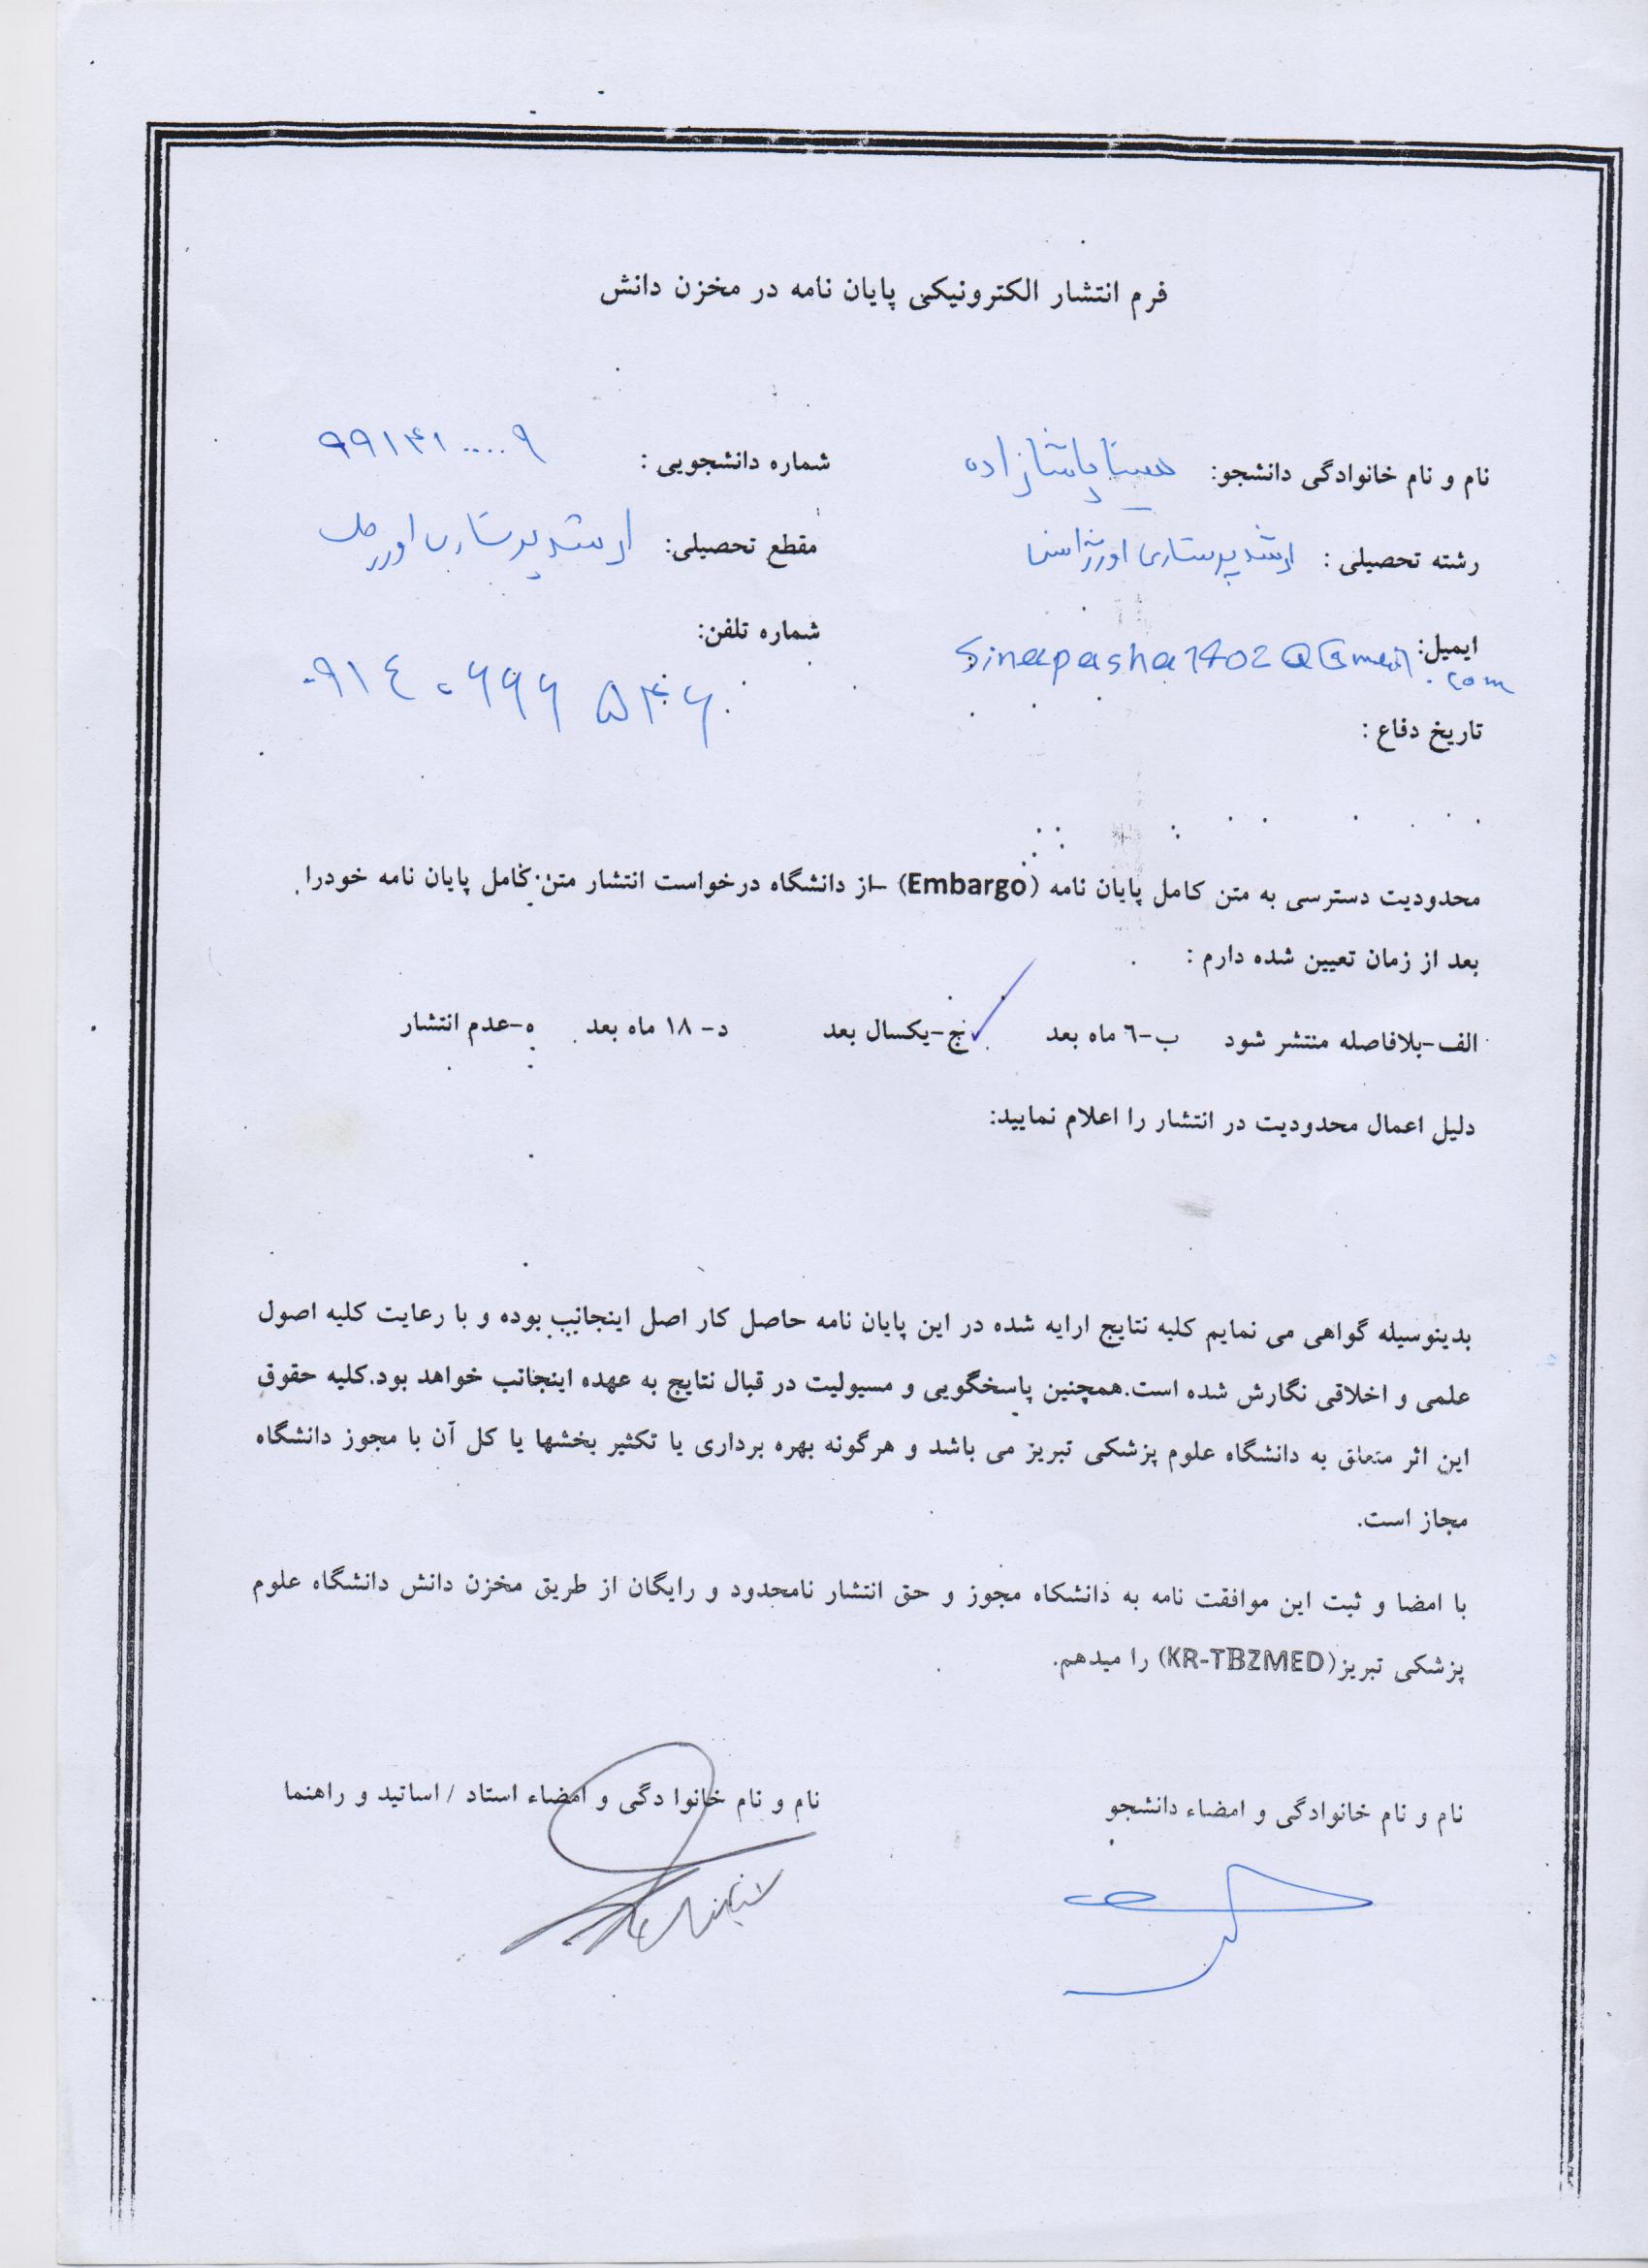 فرم انتشار الکترونیکی پایان نامه در مخزن دانش
نام و نام خانوادگی دانشجو: سینا پاشازاده
شماره دانشجویی : ۹۹۱۴۱۰۰۰۰۹
رشته تحصیلی : ارشد پرستاری اورژانس
مقطع تحصیلی: ارشد پرستاری
ایمیل: Sinapasha1402@Gmail.com
شماره تلفن:
۰۹۱۴۰۶۶۶۵۴۶
تاریخ دفاع :
محدودیت دسترسی به متن کامل پایان نامه (Embargo) –از دانشگاه درخواست انتشار متن کامل پایان نامه خودرا
بعد از زمان تعیین شده دارم :
الف-بلافاصله منتشر شود ب-٦ ماه بعد ✓ ج-یکسال بعد د- ۱۸ ماه بعد ه-عدم انتشار
دلیل اعمال محدودیت در انتشار را اعلام نمایید:
بدینوسیله گواهی می نمایم کلیه نتایج ارایه شده در این پایان نامه حاصل کار اصل اینجانب بوده و با رعایت کلیه اصول
علمی و اخلاقی نگارش شده است.همچنین پاسخگویی و مسیولیت در قبال نتایج به عهده اینجانب خواهد بود.کلیه حقوق
این اثر متعلق به دانشگاه علوم پزشکی تبریز می باشد و هرگونه بهره برداری یا تکثیر بخشها یا کل آن با مجوز دانشگاه
مجاز است.
با امضا و ثبت این موافقت نامه به دانشکاه مجوز و حق انتشار نامحدود و رایگان از طریق مخزن دانش دانشگاه علوم
پزشکی تبریز(KR-TBZMED) را میدهم.
نام و نام خانوادگی و امضاء دانشجو
نام و نام خانوا دگی و امضاء استاد / اساتید و راهنما